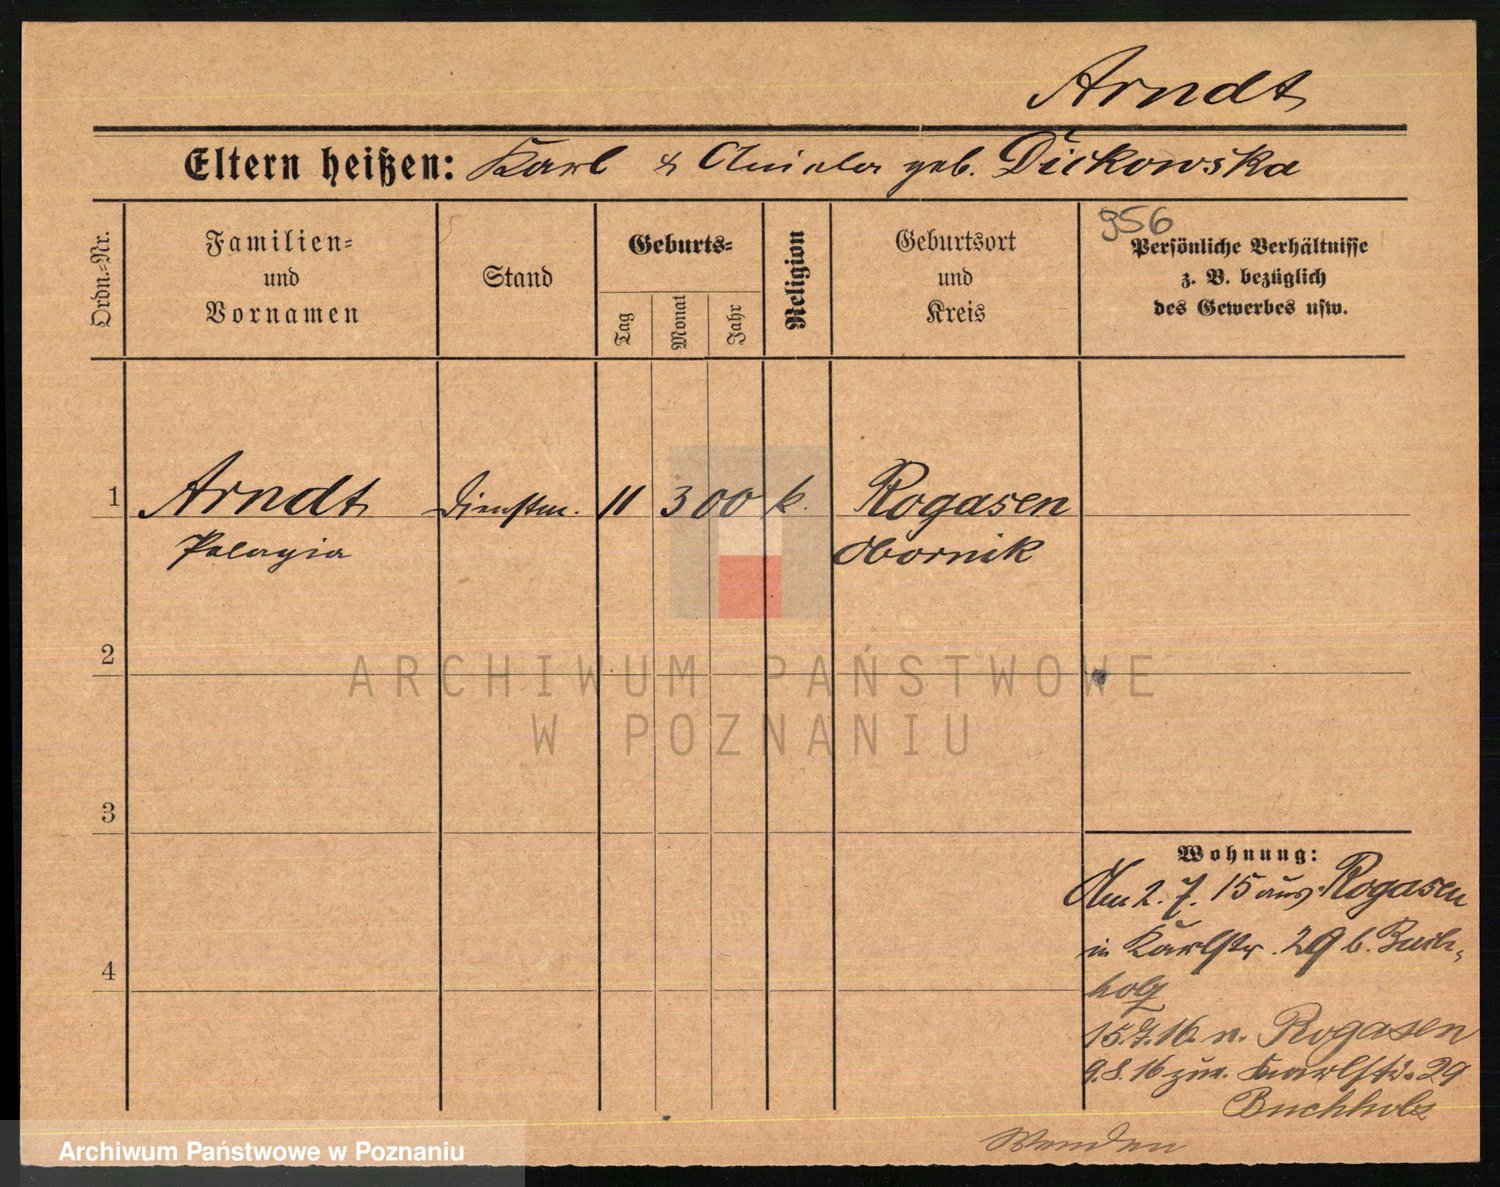 Arndt
Eltern heißen: Karl & Aniela geb. Dickowska
956
Ordn.=Nr.
Familien=
und
Vornamen
Stand
Geburts=
Tag
Monat
Jahr
Religion
Geburtsort
und
Kreis
Persönliche Verhältnisse
z. B. bezüglich
des Gewerbes usw.
1 Arndt Dienstm. 11 3 00 k. Rogasen
Pelagia Obornik
2
3
4
Wohnung:
Am 2. 7. 15 aus Rogasen
in Karlstr. 29 b. Buch-
holz
15.7.16 n. Rogasen
9.8.16 zur. Karlstr. 29
Buchholz
ARCHIWUM PAŃSTWOWE
W POZNANIU
Archiwum Państwowe w Poznaniu